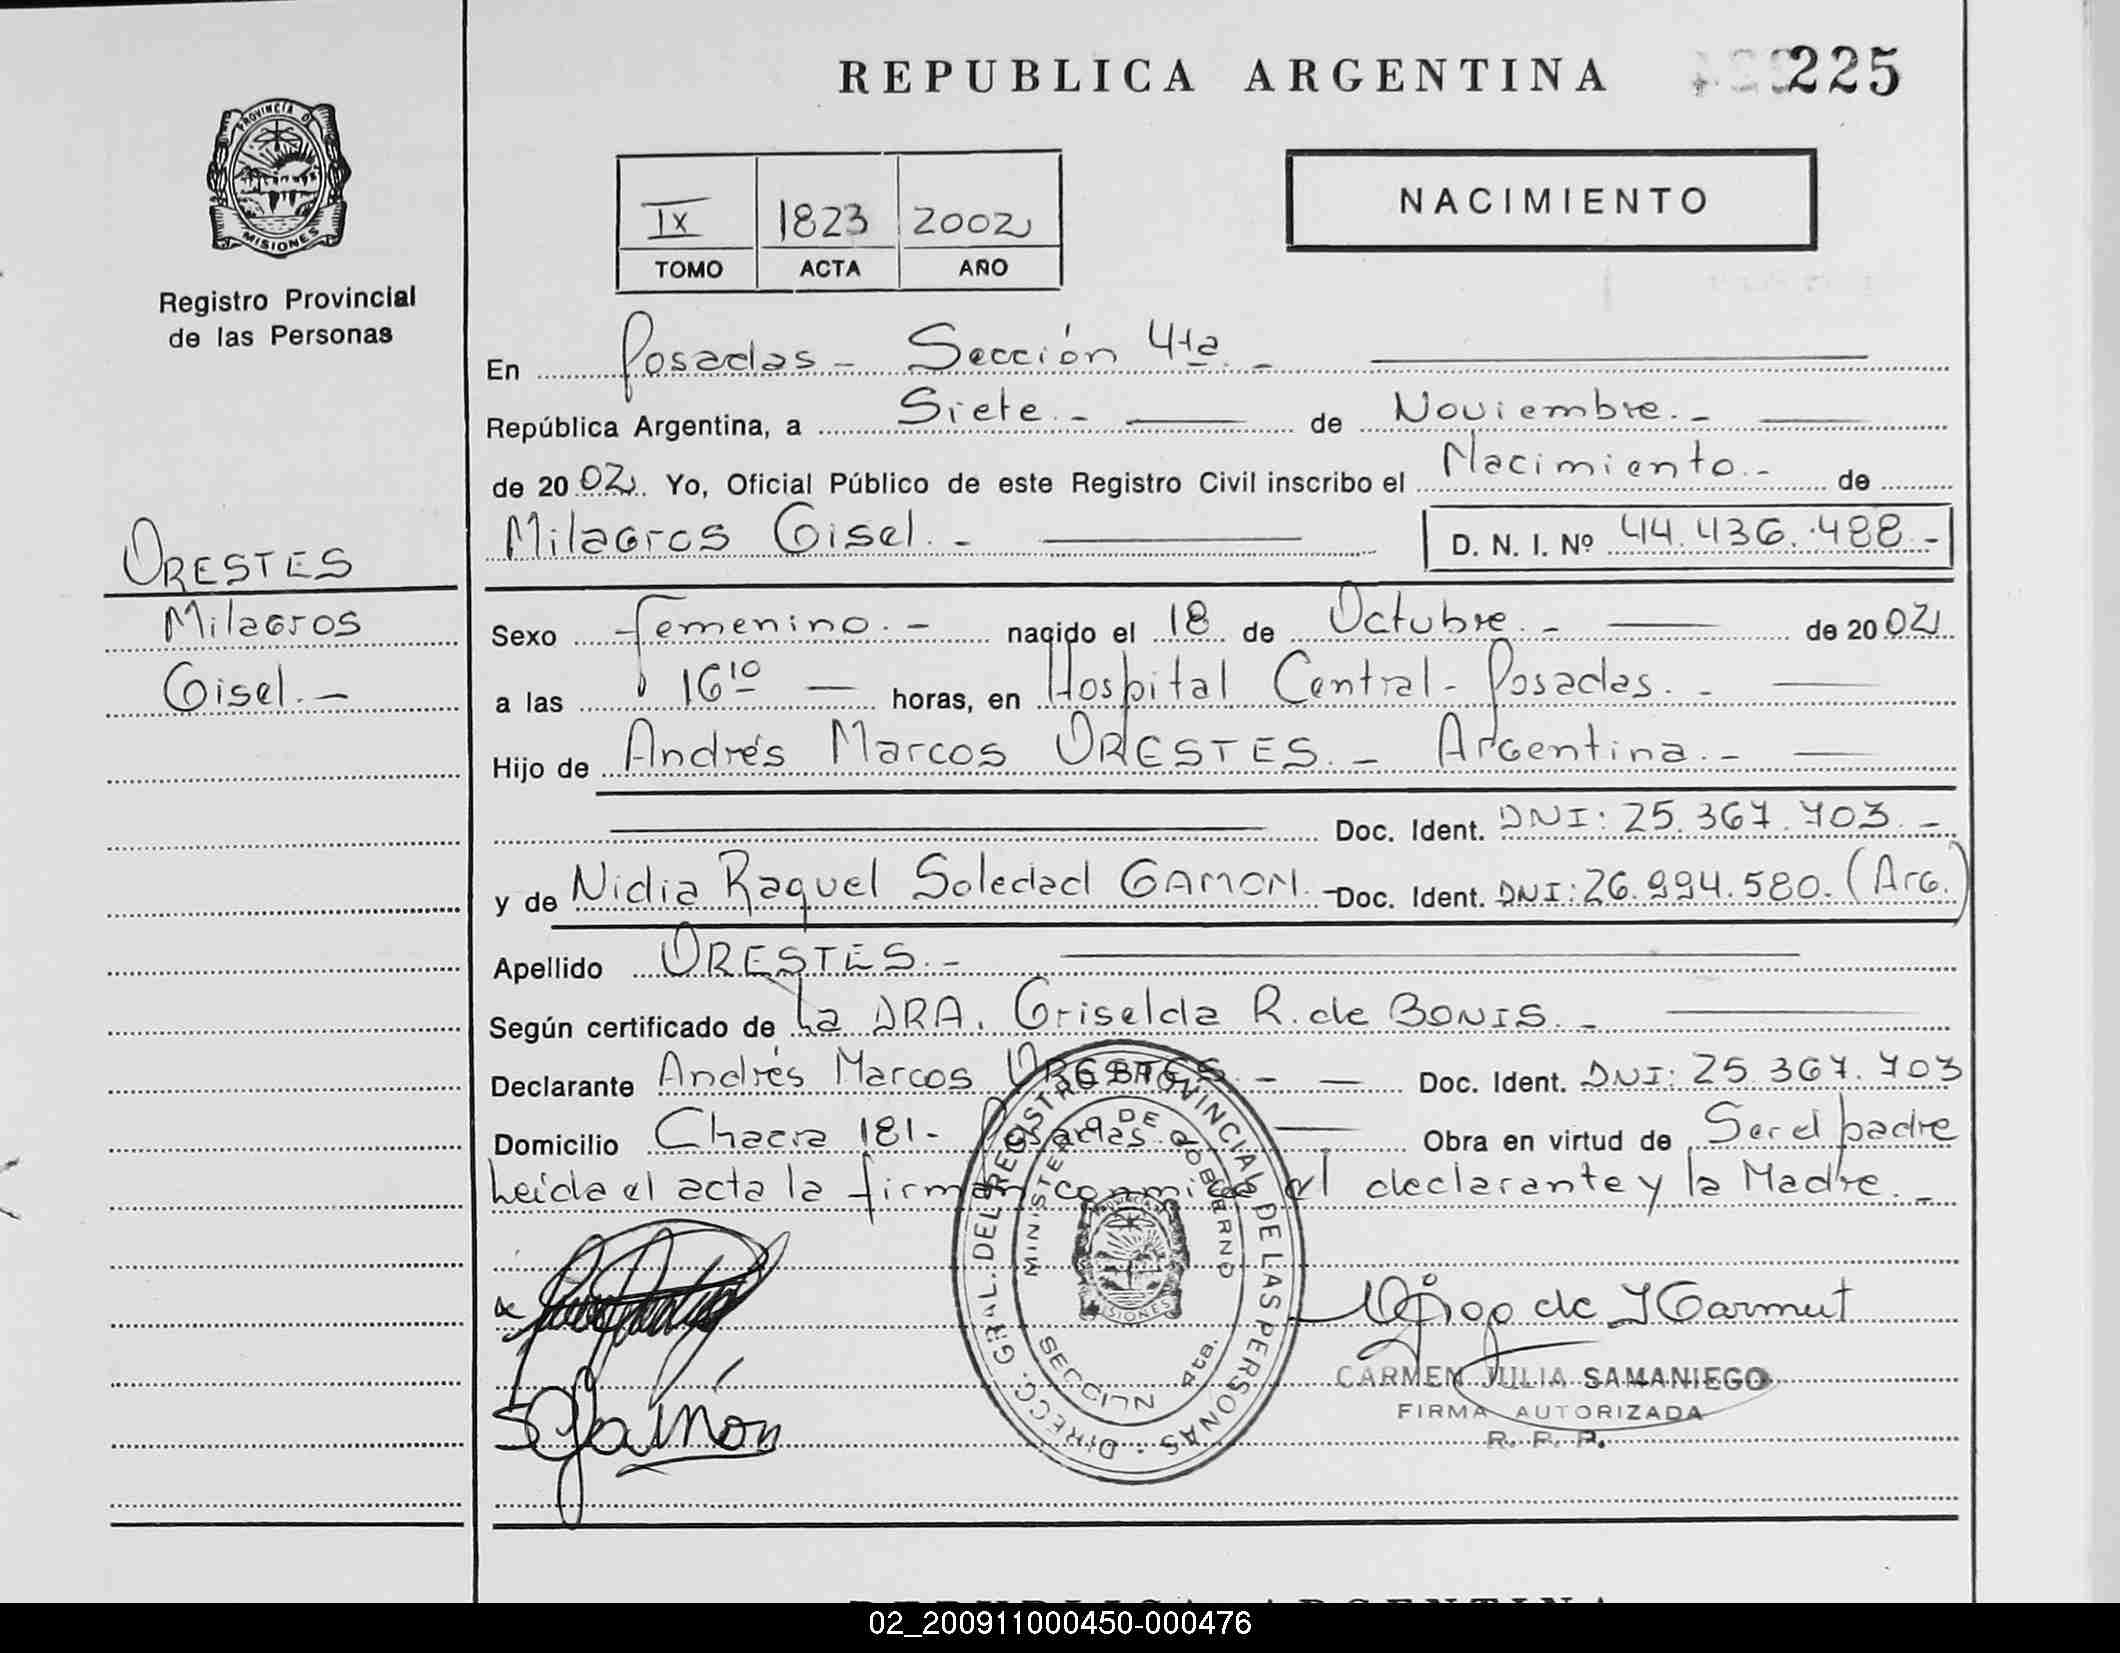 REPUBLICA ARGENTINA
225
PROVINCIA D
MISIONES
Registro Provincial
de las Personas
NACIMIENTO
IX 1823 2002
TOMO ACTA AÑO
En Posadas - Sección 4ta. -
República Argentina, a Siete. - de Noviembre. -
de 2002. Yo, Oficial Público de este Registro Civil inscribo el Nacimiento. - de
Milagros Gisel. - D. N. I. Nº 44.436.488.-
ORESTES
Milagros
Gisel. -
Sexo Femenino. - nacido el 18 de Octubre. - de 2002
a las 16 10 horas, en Hospital Central - Posadas. -
Hijo de Andrés Marcos ORESTES. - Argentina. -
Doc. Ident. DNI: 25.367.703. -
y de Nidia Raquel Soledad GAMON. - Doc. Ident. DNI: 26.994.580. (Arg.)
Apellido ORESTES. -
Según certificado de La DRA. Griselda R. de BONIS. -
Declarante Andrés Marcos ORESTES. - Doc. Ident. DNI: 25.367.703
Domicilio Chacra 181 - Posadas. Obra en virtud de Ser el padre
Leida el acta la firman conmigo el declarante y la Madre. -
DIRECC. GRAL. DEL REGISTRO PROVINCIAL DE LAS PERSONAS
MINISTERIO DE GOBIERNO
SECCION 4ta.
MISIONES
CARMEN JULIA SAMANIEGO
FIRMA AUTORIZADA
R. P. P.
REPUBLICA ARGENTINA
02_200911000450-000476